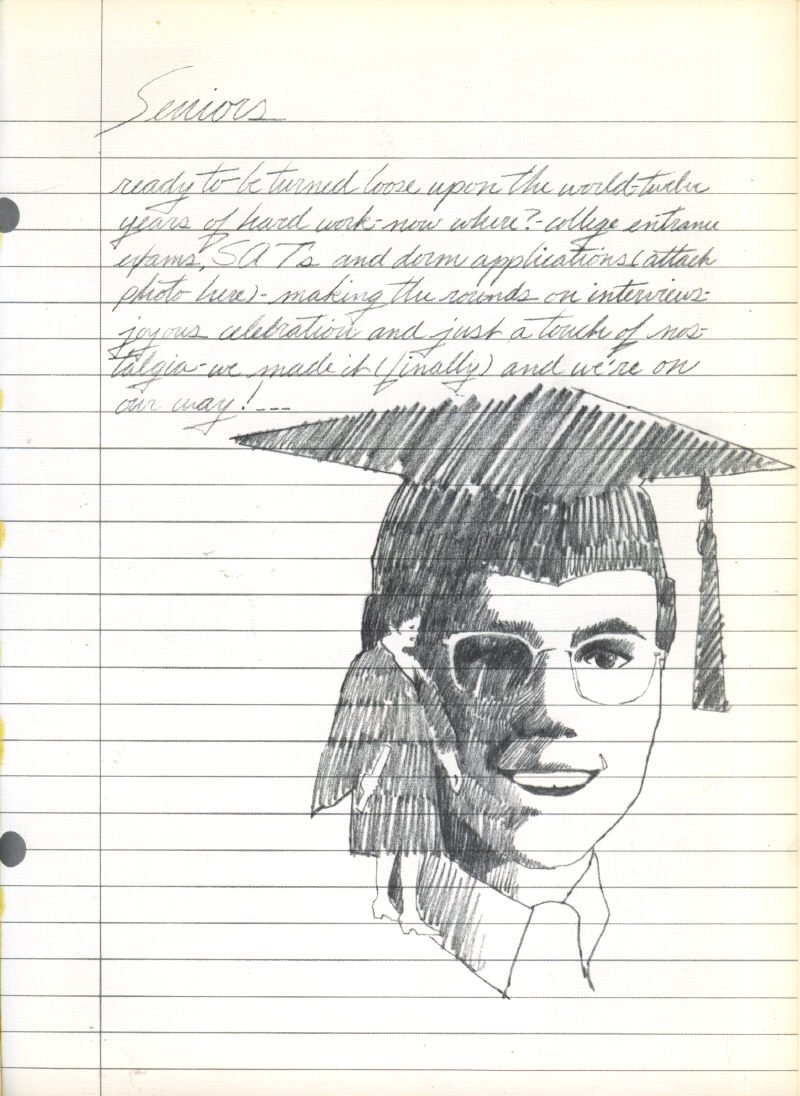 Seniors
ready to be turned loose upon the world-twelve
years of hard work-now where?-college entrance
exams, SAT's and dorm applications (attach
photo here)-making the rounds on interviews-
joyous celebration and just a touch of nos-
talgia-we made it (finally) and we're on
our way!---